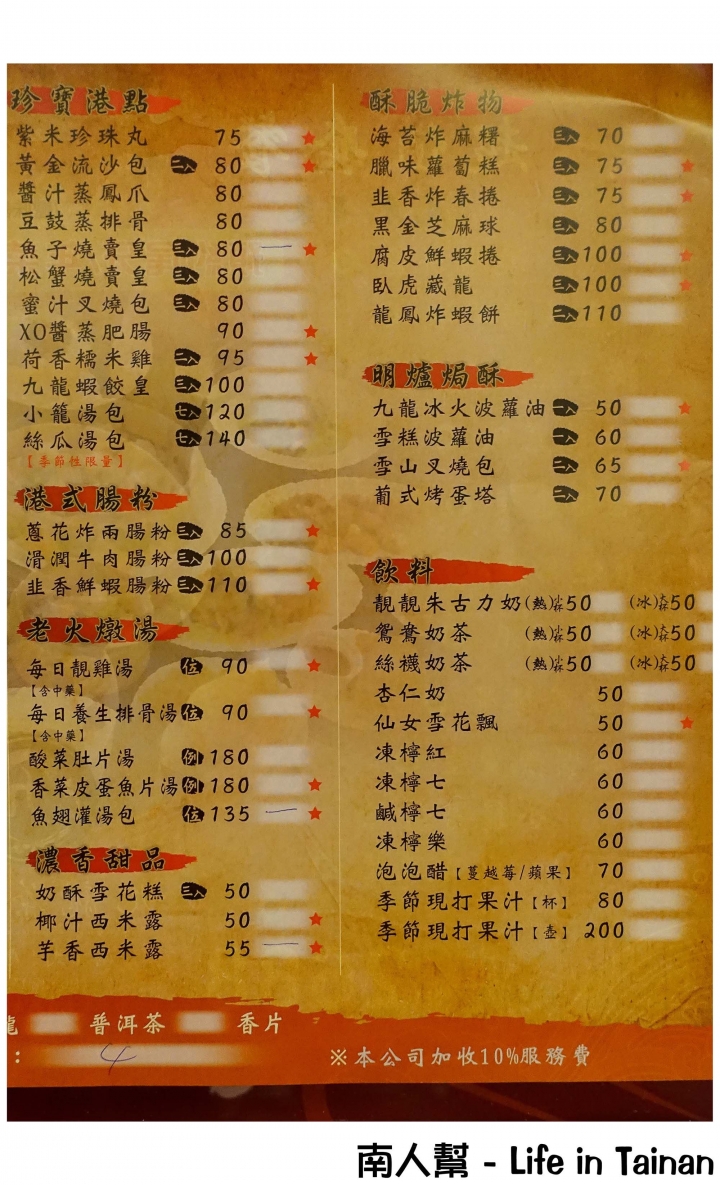 珍寶港點
紫米珍珠丸 75 ★
黃金流沙包 三入 80 ★
醬汁蒸鳳爪 80
豆鼓蒸排骨 80
魚子燒賣皇 三入 80 ★
松蟹燒賣皇 三入 80
蜜汁叉燒包 三入 80
XO醬蒸肥腸 90 ★
荷香糯米雞 二入 95 ★
九龍蝦餃皇 三入 100
小籠湯包 七入 120
絲瓜湯包 七入 140
【季節性限量】
港式腸粉
蔥花炸兩腸粉 三入 85 ★
滑潤牛肉腸粉 三入 100
韭香鮮蝦腸粉 三入 110 ★
老火燉湯
每日靚雞湯 位 90 ★
【含中藥】
每日養生排骨湯 位 90 ★
【含中藥】
酸菜肚片湯 例 180
香菜皮蛋魚片湯 例 180 ★
魚翅灌湯包 位 135 ★
濃香甜品
奶酥雪花糕 三入 50
椰汁西米露 50 ★
芋香西米露 55 ★
酥脆炸物
海苔炸麻糬 三入 70
臘味蘿蔔糕 三入 75 ★
韭香炸春捲 三入 75 ★
黑金芝麻球 三入 80
腐皮鮮蝦捲 三入 100 ★
臥虎藏龍 三入 100 ★
龍鳳炸蝦餅 二入 110
明爐焗酥
九龍冰火波蘿油 一入 50 ★
雪糕波蘿油 一入 60
雪山叉燒包 二入 65 ★
葡式烤蛋塔 二入 70
飲料
靚靚朱古力奶 (熱) 50 (冰) 50
鴛鴦奶茶 (熱) 50 (冰) 50
絲襪奶茶 (熱) 50 (冰) 50
杏仁奶 50
仙女雪花飄 50 ★
凍檸紅 60
凍檸七 60
鹹檸七 60
凍檸樂 60
泡泡醋【蔓越莓/蘋果】 70
季節現打果汁【杯】 80
季節現打果汁【壺】 200
普洱茶 香片
: 4
※本公司加收10%服務費
南人幫 - Life in Tainan